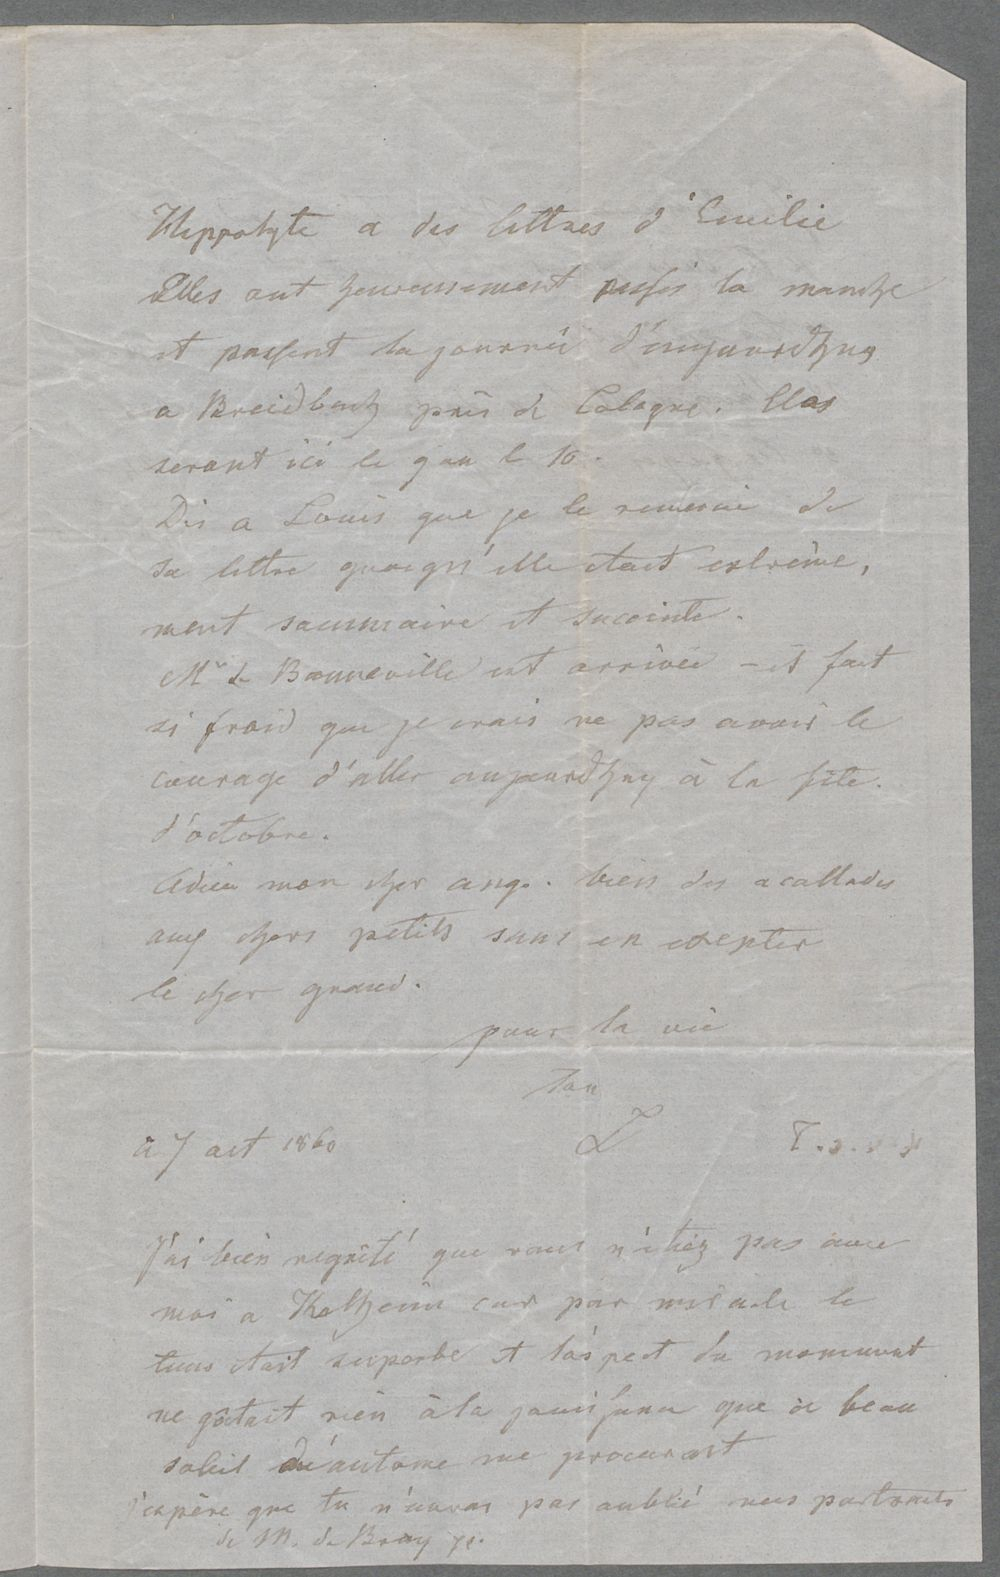 Hippolyte a des lettres d'Emilie
Elles ont heureusement passés la manche
et passent la journée d'aujourdhuy
a Breidbach près de Cologne. Elles
seront ici le 9 ou le 10.
Dis a Louis que je le remercie de
sa lettre quoiqu'elle etait extrème,
ment sommaire et succinte.
Mr de Bonneville est arrivée – il fait
si froid que je crais ne pas avoir le
courage d'aller aujourdhuy à la fète
d'octobre.
Adieu mon cher ange. bien des acollades
aux chers petits sans en exepter
le cher grand.
pour la vie
Ton
L
à 7 oct 1860
J'ai bien regrèté que vous n'étiez pas avec
moi a Kelheim car par miracle le
tems était superbe et l'aspect du monument
ne gâtait rien à la jouissance que ce beau
soleil d'automne me procurait
j'espère que tu n'auras pas oublié mes portraits
de M. de Bray